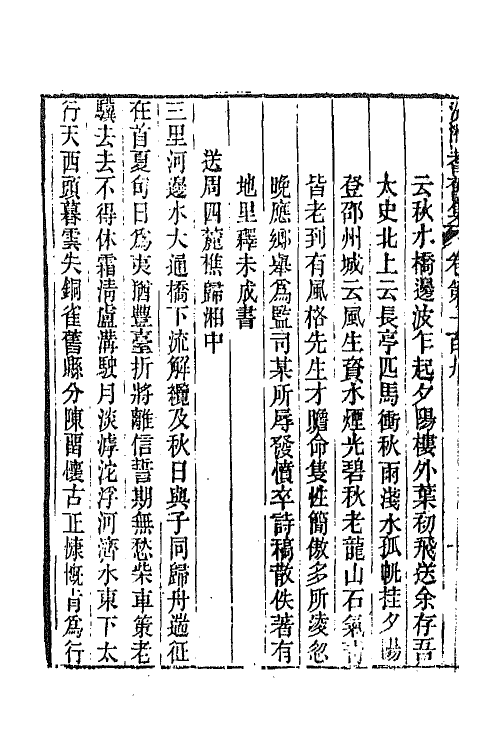 沅湘耆舊集 卷第一百九
云秋水橋邊波乍起夕陽樓外葉初飛送余存吾
太史北上云長亭匹馬衝秋雨淺水孤帆挂夕陽
登邵州城云風生資水煙光碧秋老龍山石氣青
皆老到有風格先生才贍命隻性簡傲多所凌忽
晚應鄉舉爲監司某所辱發憤卒詩稿散佚著有
地里釋未成書
送周四麓樵歸湘中
三里河邊水大通橋下流解纜及秋日與子同歸舟遄征
在首夏旬日爲夷猶豐臺折將離信誓期無愁柴車策老
驥去去不得休霜清盧溝駛月淡滹沱浮河濟水東下太
行天西頭暮雲失銅雀舊縣分陳畱懷古正慷慨肯爲行